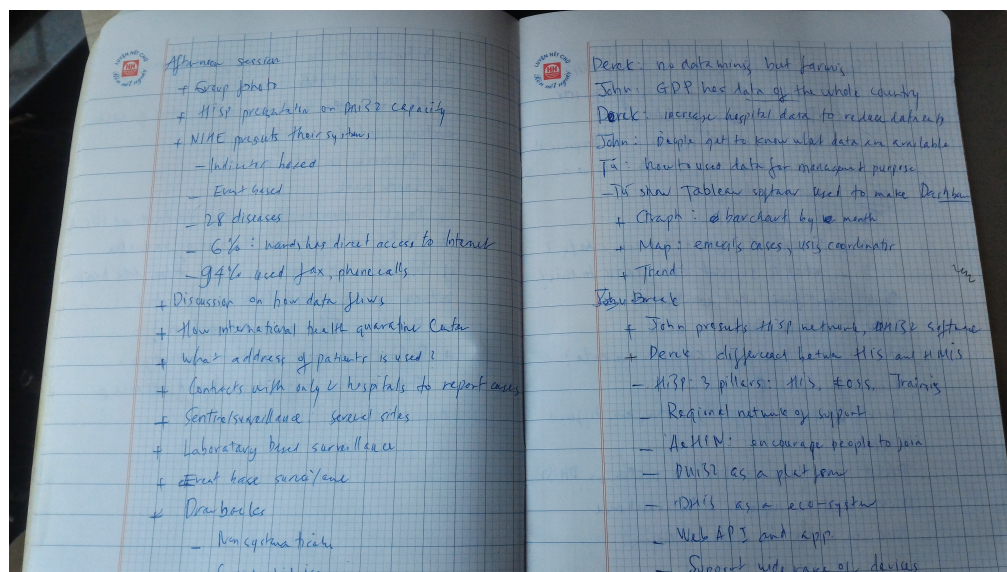 Afternoon session
+ Group photo
+ HISP presentation on DHIS2 capacity
+ NIHE presents their systems
- Indicator based
- Event based
- 28 diseases
- 6% : wards has direct access to Internet
- 94% used fax, phone calls
+ Discussion on how data flows
+ How international health quarantine Center
+ What address of patients is used?
+ Contracts with only hospitals to report cases
+ Sentinel surveillance: several sites
+ Laboratory based surveillance
+ Event base surveillance
+ Drawbacks
-
Derek: no data mining but farming
John: GDP has data of the whole country
Derek: increase hospital data to reduce
John: People get to know what data are available
Tú: how to used data for management purpose
- Tú show Tableau software used to make Dashboa
+ Graph: barchart by month
+ Map: cases, using coordinator
+ Trend
Break
+ John presents HISP network, DHIS2 software
+ Derek: different between HIS and HMIS
- HISP: 3 pillars: HIS, FOSS, Training
- Regional network of support
- AeHIN: encourage people to join
- DHIS2 as a platform
- DHIS as a eco-system
- Web API and app
- Support wide range of devices